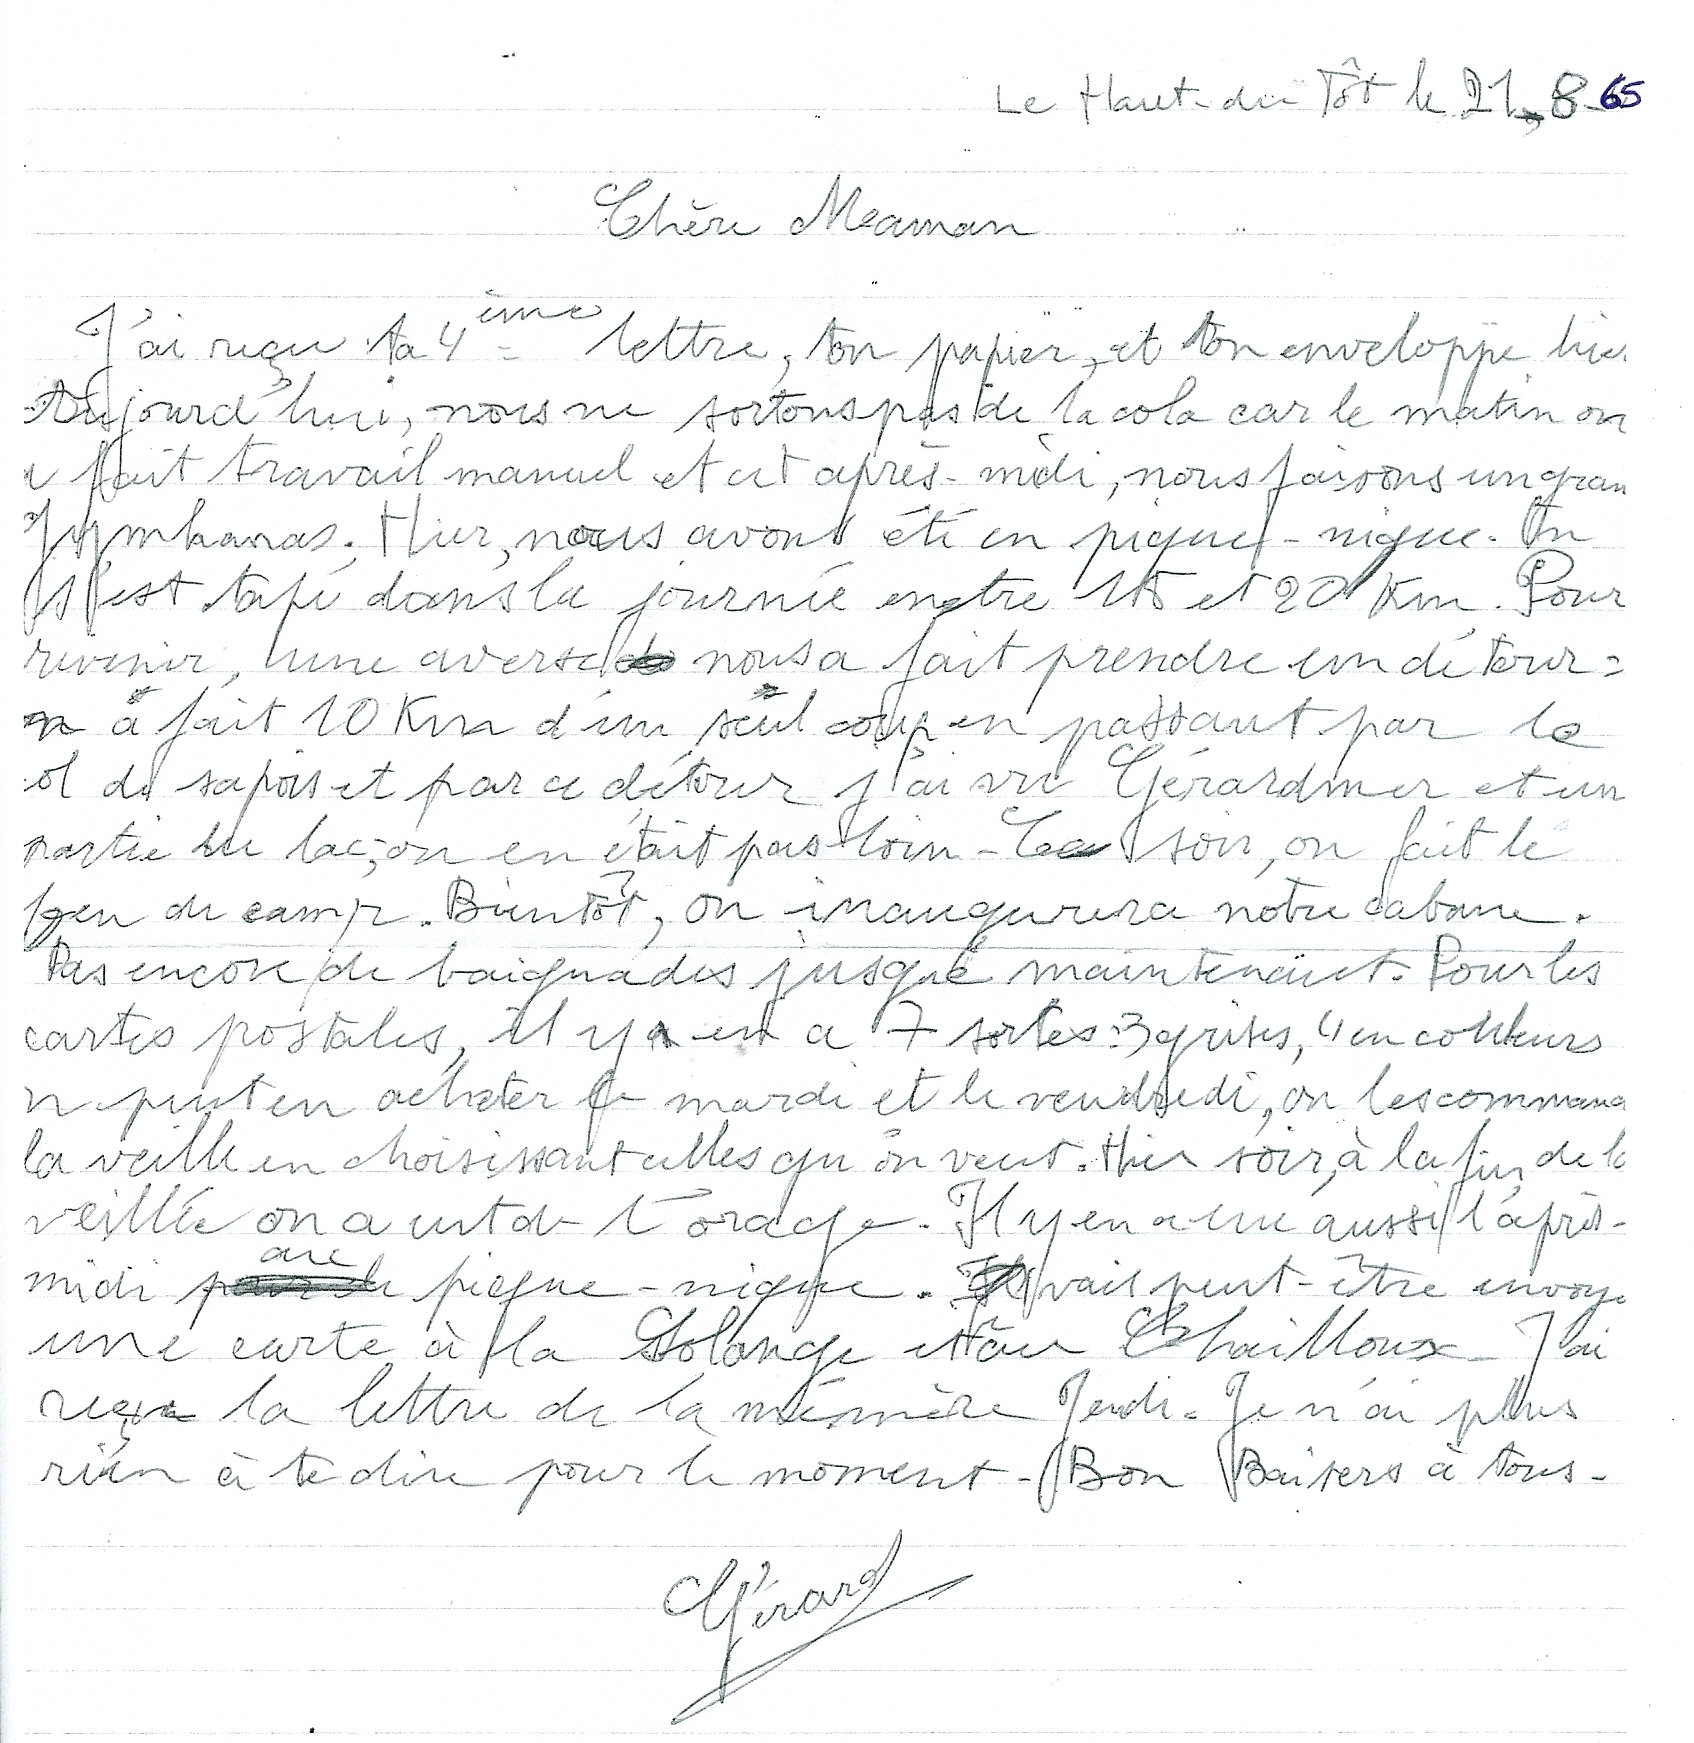 Le Haut-du Tôt le 21-8-65
Chère Maman
J'ai reçu ta 4ème lettre, ton papier, et ton enveloppe hier
Aujourd'hui, nous ne sortons pas de la colo car le matin on
a fait travail manuel et cet après-midi, nous faisons un gran
Gymkanas. Hier, nous avons été en pique-nique. On
s'est tapé dans la journée entre 15 et 20 Km. Pour
revenir, une averse nous a fait prendre un détour:
on a fait 10 Km d'un seul coup en passant par le
ol de sapois et par ce détour j'ai vu Gérardmer et un
partie du lac; on en était pas loin - Ce soir, on fait le
feu de camp. Bientôt, on inaugurera notre cabane.
Pas encore de baignades jusque maintenant. Pour les
cartes postales, il y en a 7 sortes: 3 grises, 4 en couleurs
n peut en acheter le mardi et le vendredi, on les command
la veille en choisissant celles qu'on veut. Hier soir, à la fin de la
veillée on a eut de l'orage. Il y en a eu aussi l'après-
midi au pique-nique. Je vais peut-être envoye
une carte à la Solange et au Chailloux - J'ai
reçu la lettre de la mémère Jeudi. Je n'ai plus
rien à te dire pour le moment - Bon Baisers à tous -
Gérard